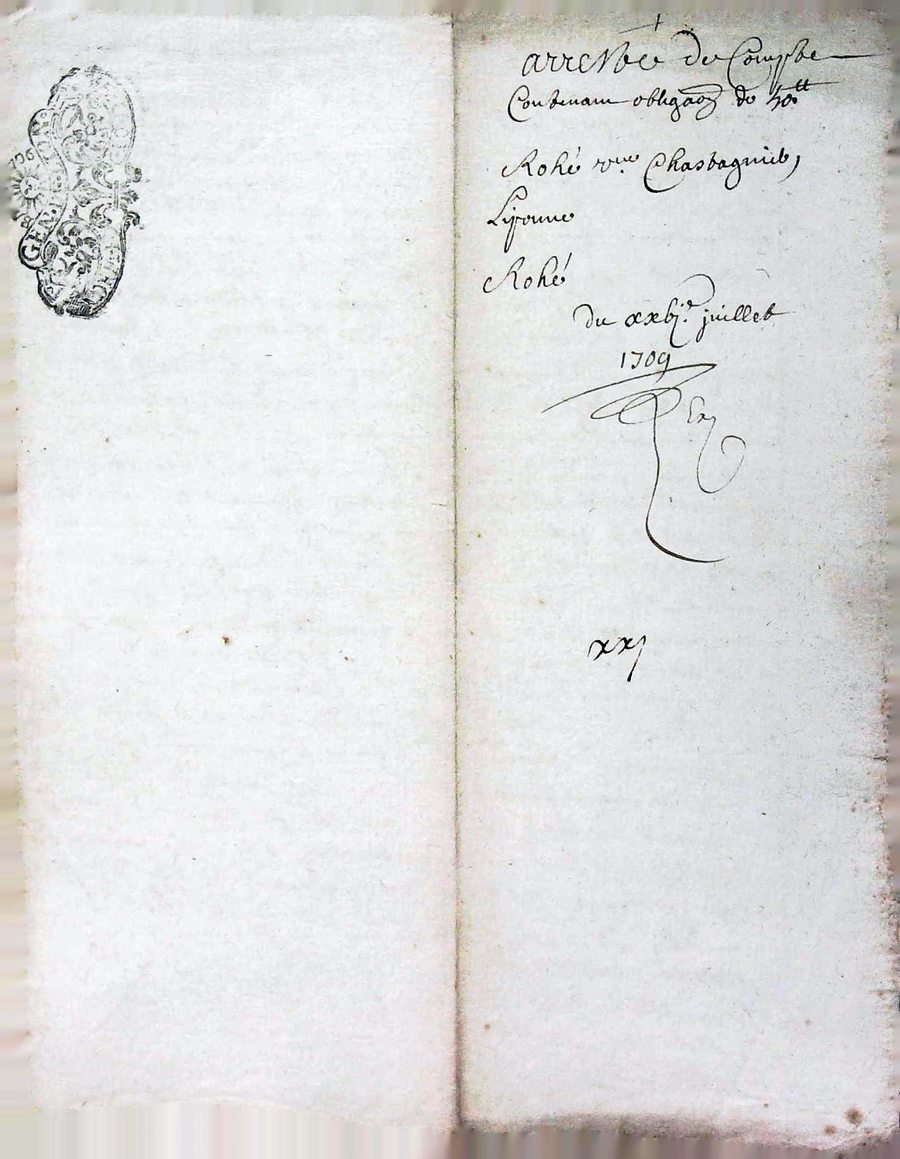 GEN.
arrestée de Compte
Contenant obligaõn de 40ᵗᵗ
Rohé vᵛᵉ Chastagnier,
Rohé
du xxbjᵉ juillet
1709
xxj